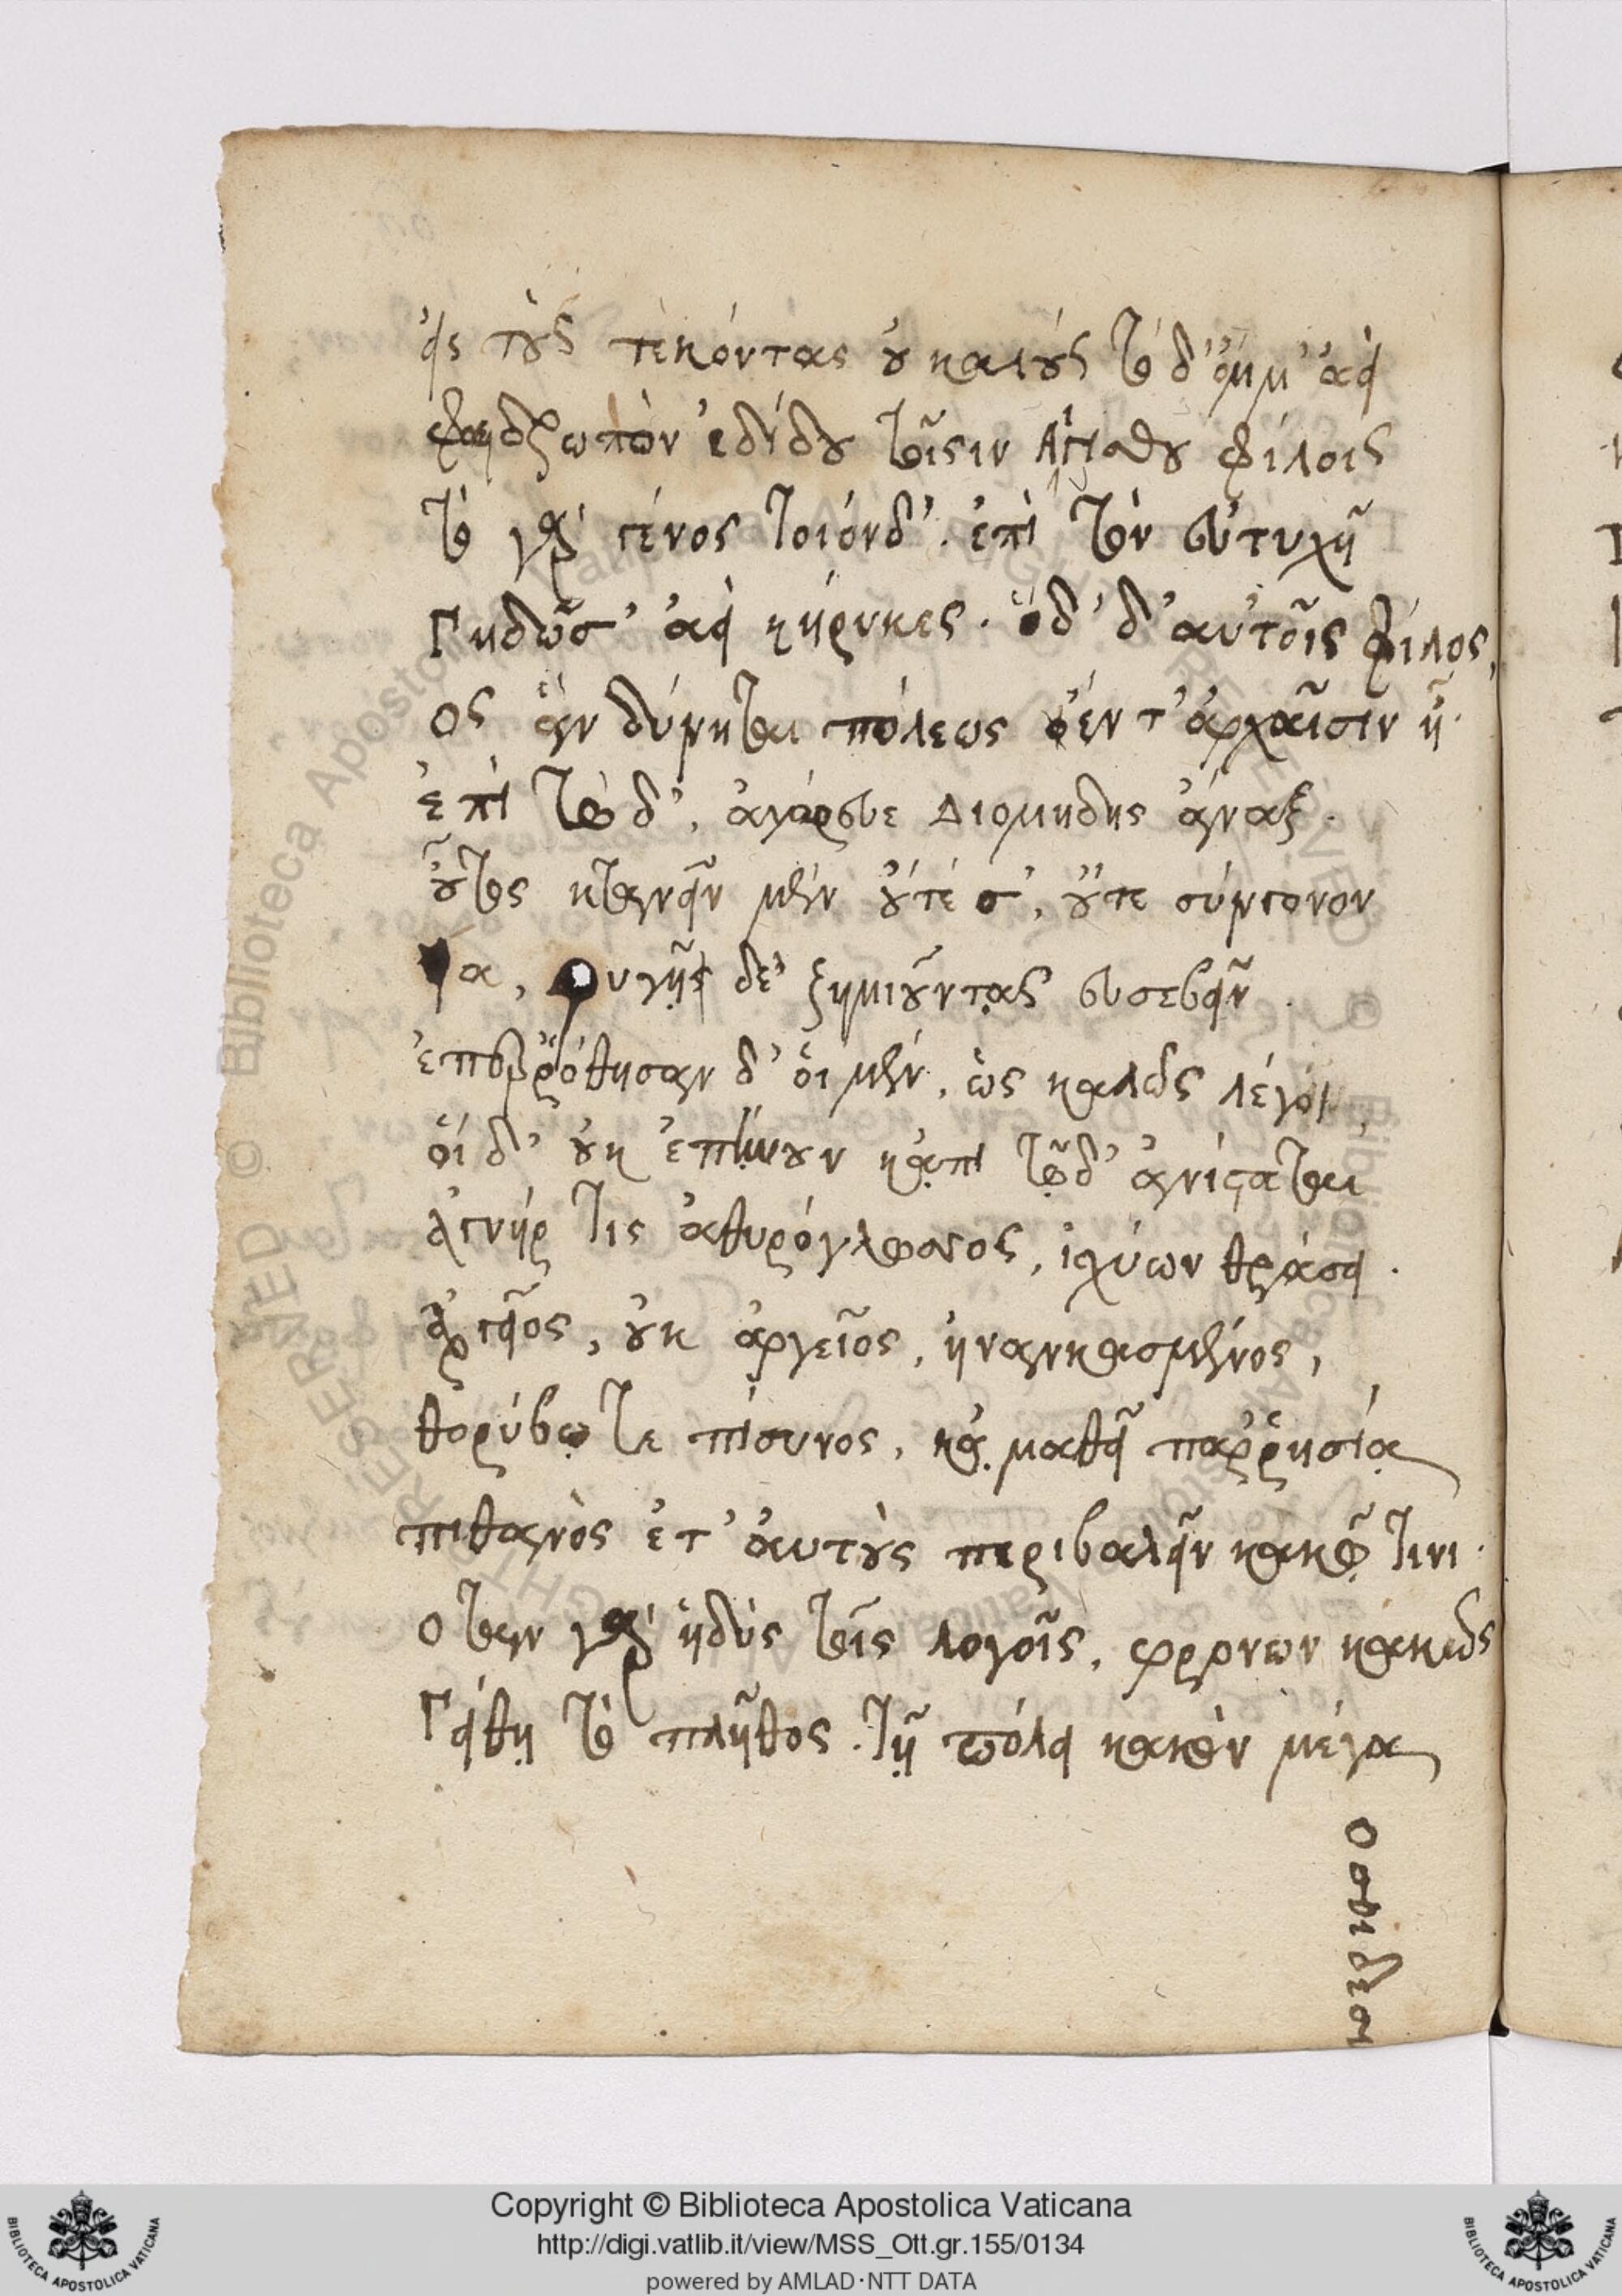 εἰς τοὺς τεκόντας οὐ καλούς τὸ δ' ὄμμ' ἀεὶ
φαιδρωπὸν ἐδίδου τοῖσιν Αἰγίσθου φίλοις
τὸ γὰρ γένος τοιόνδ'. ἐπὶ τὸν εὐτυχῆ
πηδῶσ' ἀεὶ κήρυκες. ὅδ' δ' αὐτοῖς φίλος,
ος ἂν δύνηται πόλεως ἐν τ' ἀρχαῖσιν ῇ.
ἐπὶ τῷ δ', ἀγόρευε Διομήδης ἄναξ.
οὗτος κτανεῖν μὲν οὔτέ σ', οὔτε σύγγονον
, φυγῇ δὲ ζημιοῦντας εὐσεβεῖν.
ἐπερρόθησαν δ' οἱ μὲν, ὡς καλῶς λέγοι,
οἱ δ' οὐκ ἐπῄνουν κᾀπὶ τῷδ' ἀνίσταται
ἀνήρ τις ἀθυρόγλωσσος, ἰσχύων θράσει.
ἀργεῖος, οὐκ ἀργεῖος, ἠναγκασμένος,
θορύβῳ τε πίσυνος, κᾀμαθεῖ παῤῥησίᾳ
πιθανὸς ἐτ' ἀυτοὺς περιβαλεῖν κακῷ τινι.
οταν γὰρ ἡδὺς τοῖς λογοῖς, φρρονων κακῶς
πείθῃ τὸ πλῆθος. τῇ πόλει κακὸν μέγα